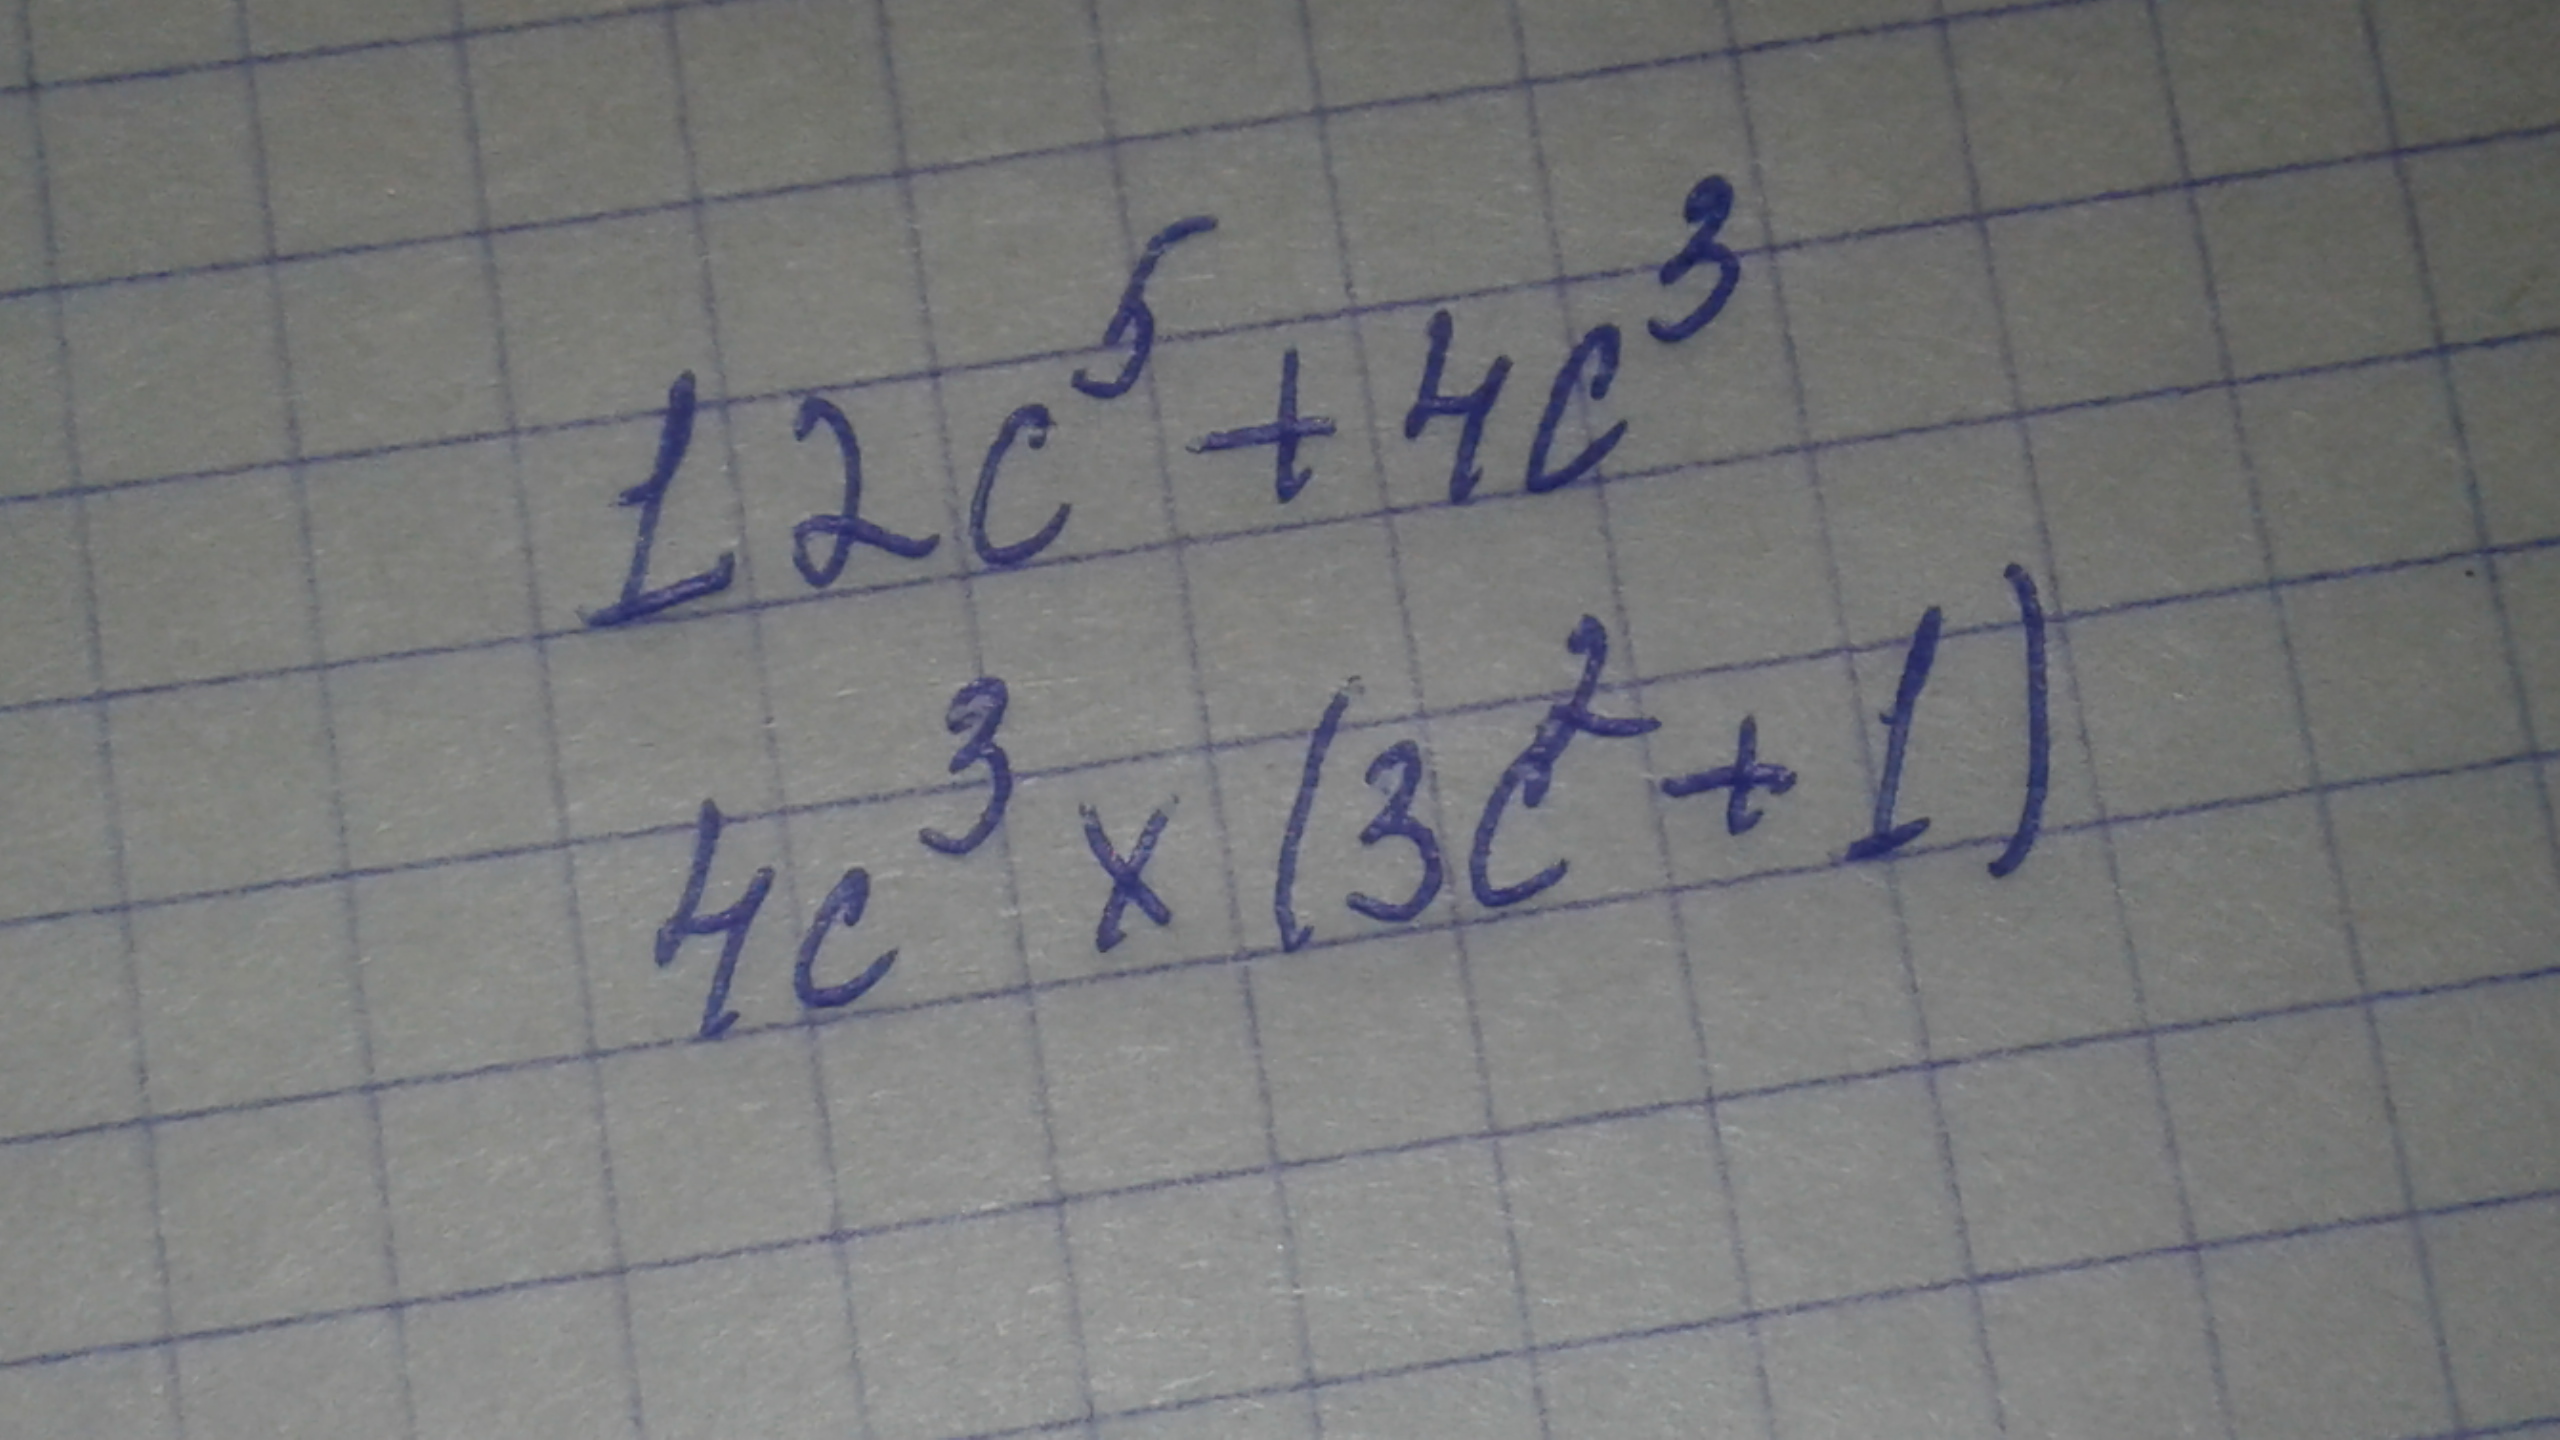 12c⁵+4c³
4c³×(3c²+1)